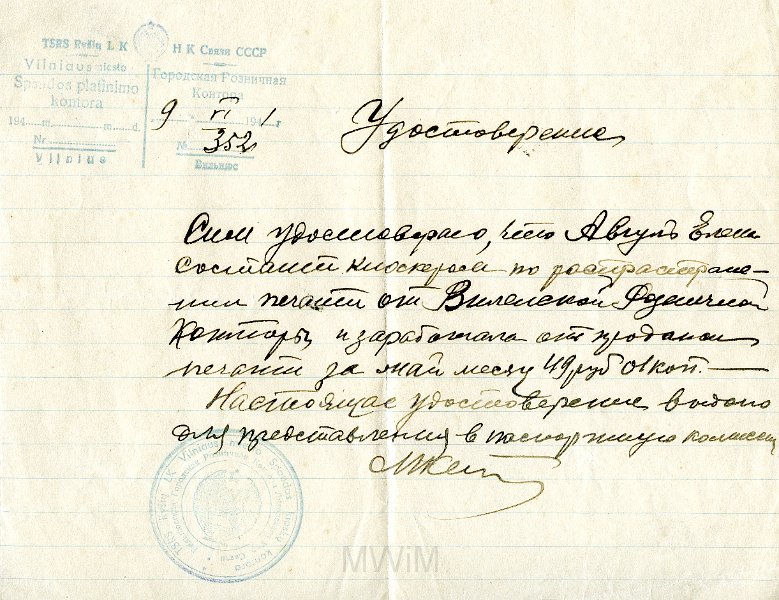 TSRS Ryšių L K
Vilniaus miesto
Spaudos platinimo
kontora
194 m. m. d.
Nr
Vilnius
Н К Связи СССР
Городская Розничная
Контора
9 VI 1941 г
№ 352
Вильнюс
Удостоверение
Сим удостоверяю, что Авгуль Елена
состоит киоскером по распростране-
нии печати от Виленской Розничной
Конторы и заработала от продажи
печати за май месяц 49 руб 01 коп.
Настоящее удостоверение выдано
для представления в паспортную комиссию
TSRS Ryšių LK Vilniaus m. Spaudos
kontora
MWiM